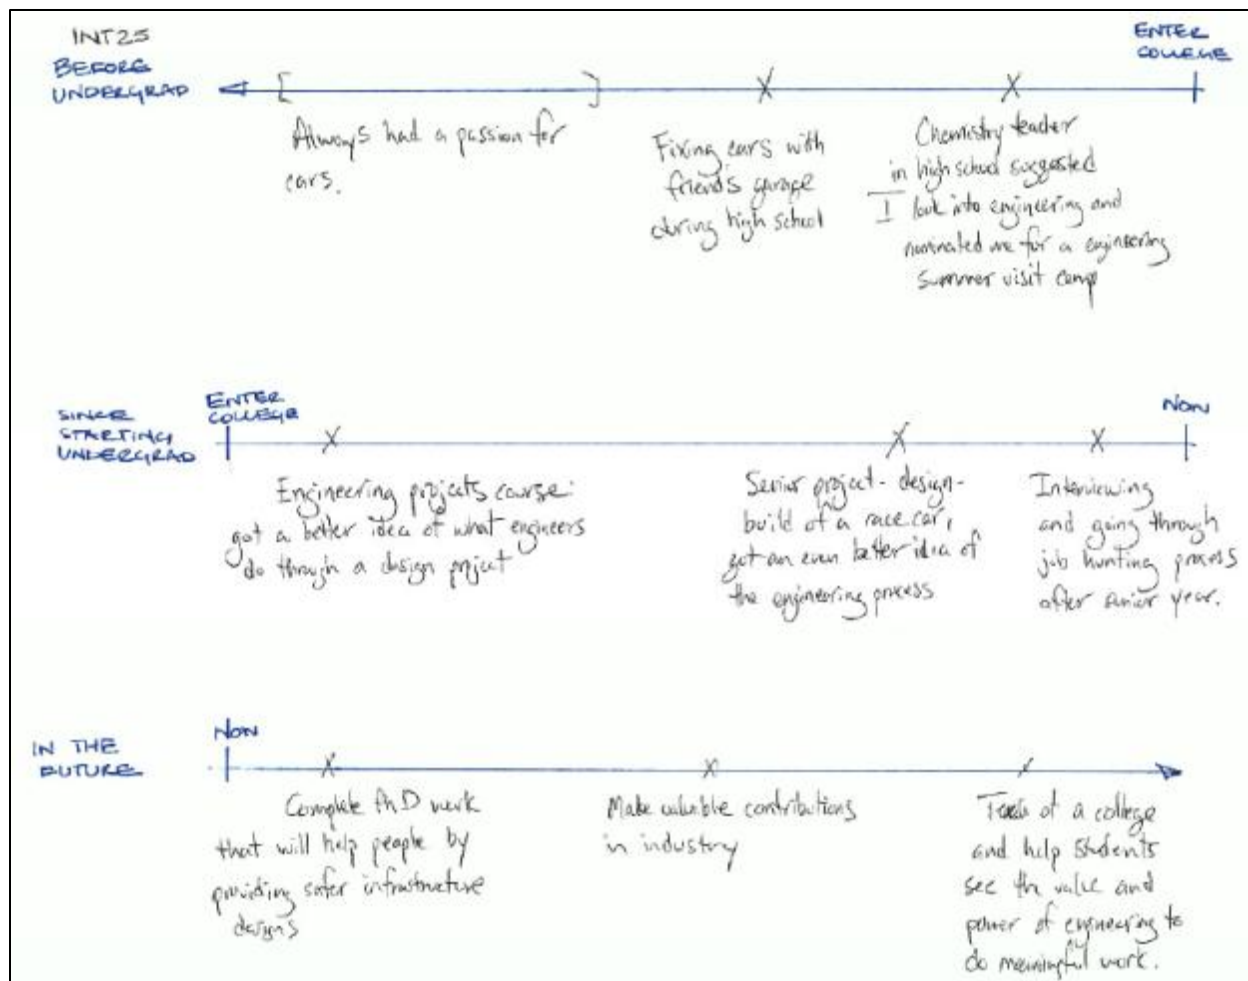 INT25
BEFORE
UNDERGRAD
ENTER
COLLEGE
Always had a passion for
cars.
Fixing cars with
friends garage
during high school
Chemistry teacher
in high school suggested
I look into engineering and
nominated me for a engineering
summer visit camp
SINCE
STARTING
UNDERGRAD
ENTER
COLLEGE
NOW
Engineering projects course:
got a better idea of what engineers
do through a design project
Senior project - design-
build of a race car,
got an even better idea of
the engineering process
Interviewing
and going through
job hunting process
after senior year.
IN THE
FUTURE
NOW
Complete PhD work
that will help people by
providing safer infrastructure
designs
Make valuable contributions
in industry
Teach at a college
and help students
see the value and
power of engineering to
do meaningful work.